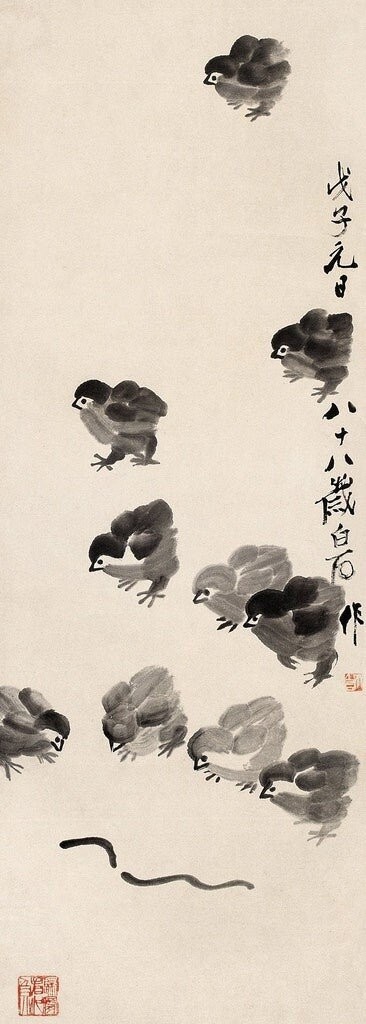 戊子元日八十八歲白石作